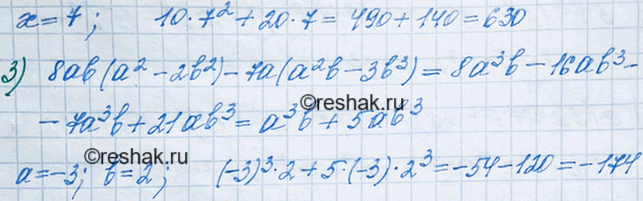 x=7; 10·7²+20·7=490+140=630
3) 8ab(a²-2b²)-7a(a²b-3b³)=8a³b-16ab³-
©reshak.ru
-7a³b+21ab³=a³b+5ab³
©reshak.ru
a=-3; b=2; (-3)³·2+5·(-3)·2³=-54-120=-174